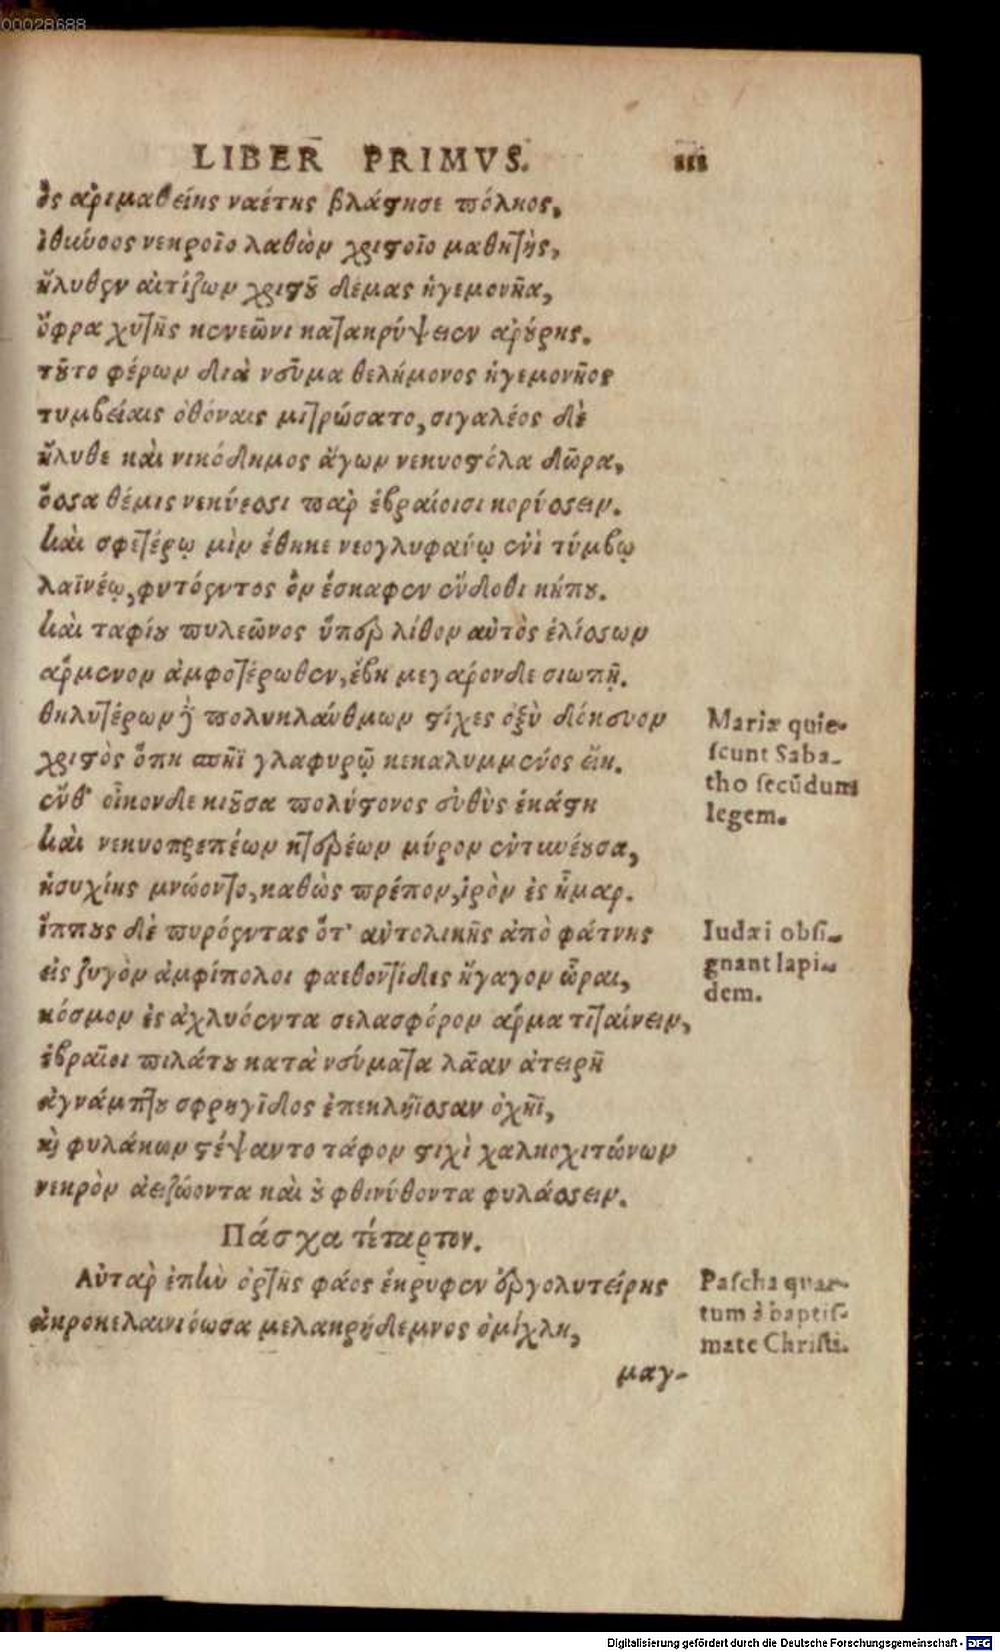 00028688
LIBER PRIMVS. 111
ὃς ἀριμαθείης ναέτης βλάστησε πόληος,
ἰθύνοος νεκροῖο λαθὼν χριστοῖο μαθητὴς,
ἤλυθεν αἰτίζων χριστοῦ δέμας ἡγεμονῆα,
ὄφρα χυτῆς κενεῶνι κατακρύψειεν ἀρούρης.
τοῦτο φέρων διὰ νεῦμα θελήμονος ἡγεμονῆος
τυμβείαις ὀθόναις μιτρώσατο, σιγαλέος δὲ
ἤλυθε καὶ νικόδημος ἄγων νεκυοστόλα δῶρα,
ὅσσα θέμις νεκύεσσι παρ ἑβραίοισι κορύσσειν.
Καὶ σφετέρῳ μὶν ἔθηκε νεογλυφανῳ ἐνὶ τύμβῳ
λαϊνέῳ, φυτόεντος ὃν ἔσκαφεν ἔνδοθι κήπου.
Καὶ ταφίου πυλεῶνος ὕπερ λίθον αὐτὸς ἑλίσσων
ἅρμενον ἀμφοτέρωθεν, ἔβη μεγαρόνδε σιωπῇ.
θηλυτέρων γ πολυκλαύθμων στίχες ὀξὺ διόκευον
χριστὸς ὅπη σπῆϊ γλαφυρῷ κεκαλυμμένος εἴη.
ἔνθ' οἶκονδε κιοῦσα πολύστονος εὐθὺς ἑκάστη
Καὶ νεκυοπρεπέων κτερέων μύρον ἐντυνέουσα,
ἡσυχίης μνώοντο, καθὼς πρέπον, ἱρὸν ἐς ἦμαρ.
ἵππους δὲ πυρόεντας ὅτ' αὐτολικῆς ἀπὸ φάτνης
εἰς ζυγὸν ἀμφίπολοι φαεθοντίδες ἤγαγον ὧραι,
κόσμον ἐς ἀχλυόεντα σελασφόρον ἅρμα τιταίνειν,
ἑβραῖοι πιλάτου κατὰ νεύματα λᾶαν ἀτειρῆ
ἀγνάμπτου σφρηγῖδος ἐπεκλήϊσσαν ὀχῆϊ,
καὶ φυλάκων στέψαντο τάφον στιχὶ χαλκοχιτώνων
νεκρὸν ἀειζώοντα καὶ οὐ φθινύθοντα φυλάσσειν.
Πάσχα τέταρτον.
Αὐτὰρ ἐπὴν ὀρτῆς φάος ἔκρυφεν ὀργολυτείρης
ἀκροκελαινιόωσα μελακρήδεμνος ὀμίχλη,
μαγ-
Mariæ quie-
scunt Saba-
tho secũdum
legem.
Iudæi obsi-
gnant lapi-
dem.
Pascha quar-
tum à baptis-
mate Christi.
Digitalisierung gefördert durch die Deutsche Forschungsgemeinschaft - DFG